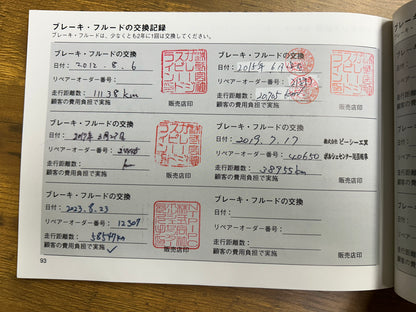 ブレーキ・フルードの交換記録
ブレーキ・フルードは、少なくとも2年に1回は交換してください。
ブレーキ・フルードの交換
日付：2012.8.6
リペアーオーダー番号：
走行距離数：11138km
顧客の費用負担で実施
販売店印
ブレーキ・フルードの交換
日付：2015年6月
リペアーオーダー番号：
走行距離数：20705km
顧客の費用負担で実施
販売店印
ブレーキ・フルードの交換
日付：2017年
リペアーオーダー番号：
走行距離数： km
顧客の費用負担で実施
販売店印
ブレーキ・フルードの交換
日付：2019.7.17
株式会社 ピーシー工業
リペアーオーダー番号：40650
走行距離数：38955km
顧客の費用負担で実施
販売店印
ブレーキ・フルードの交換
日付：2023.8.23
リペアーオーダー番号：12309
走行距離数：58547km
顧客の費用負担で実施
販売店印
ブレーキ・フルードの交換
日付：
リペアーオーダー番号：
走行距離数：
顧客の費用負担で実施
販売店印
93